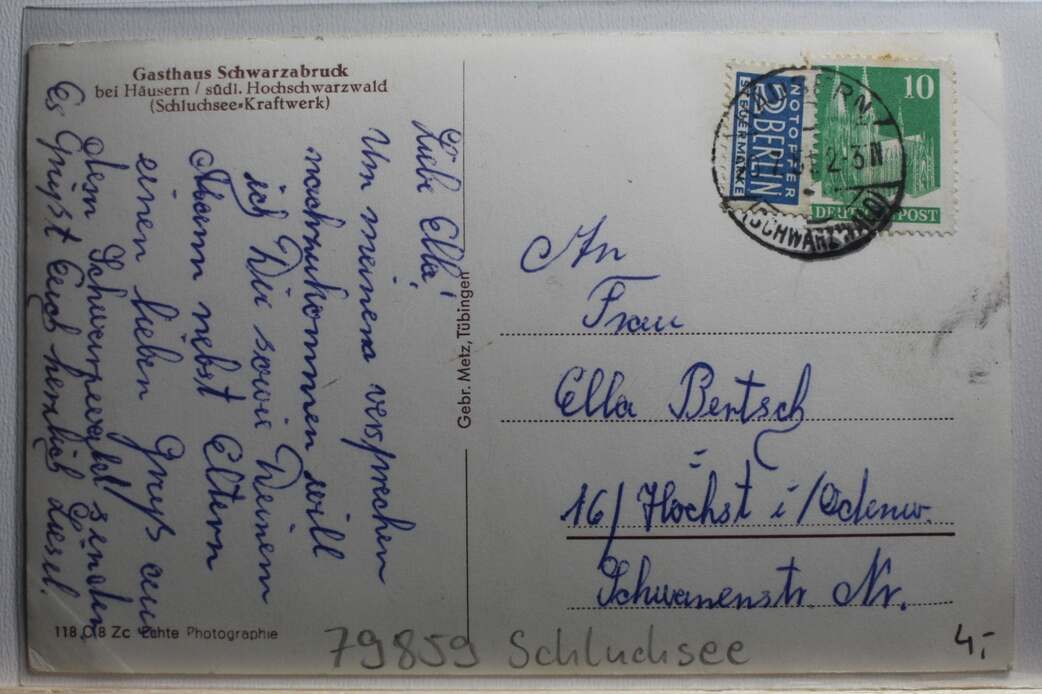 Gasthaus Schwarzabruck
bei Häusern / südl. Hochschwarzwald
(Schluchsee-Kraftwerk)
Liebe Ella!
Um meinem versprechen
nachzukommen will
ich Dir sowie Deinem
Mann nebst Eltern
einen lieben Gruß aus
dem Schwarzwald senden
Es Grüßt Euch herzlich Liesel.
Gebr. Metz, Tübingen
NOTOPFER
2 BERLIN
STEUERMARKE
10
DEUTSCHE POST
2-3N
(SCHWARZWALD)
An
Frau
Ella Bertsch
16/ Höchst i/Odenw.
Schwanenstr. Nr.
118 C 8 Zc Echte Photographie
79859 Schluchsee
4,-